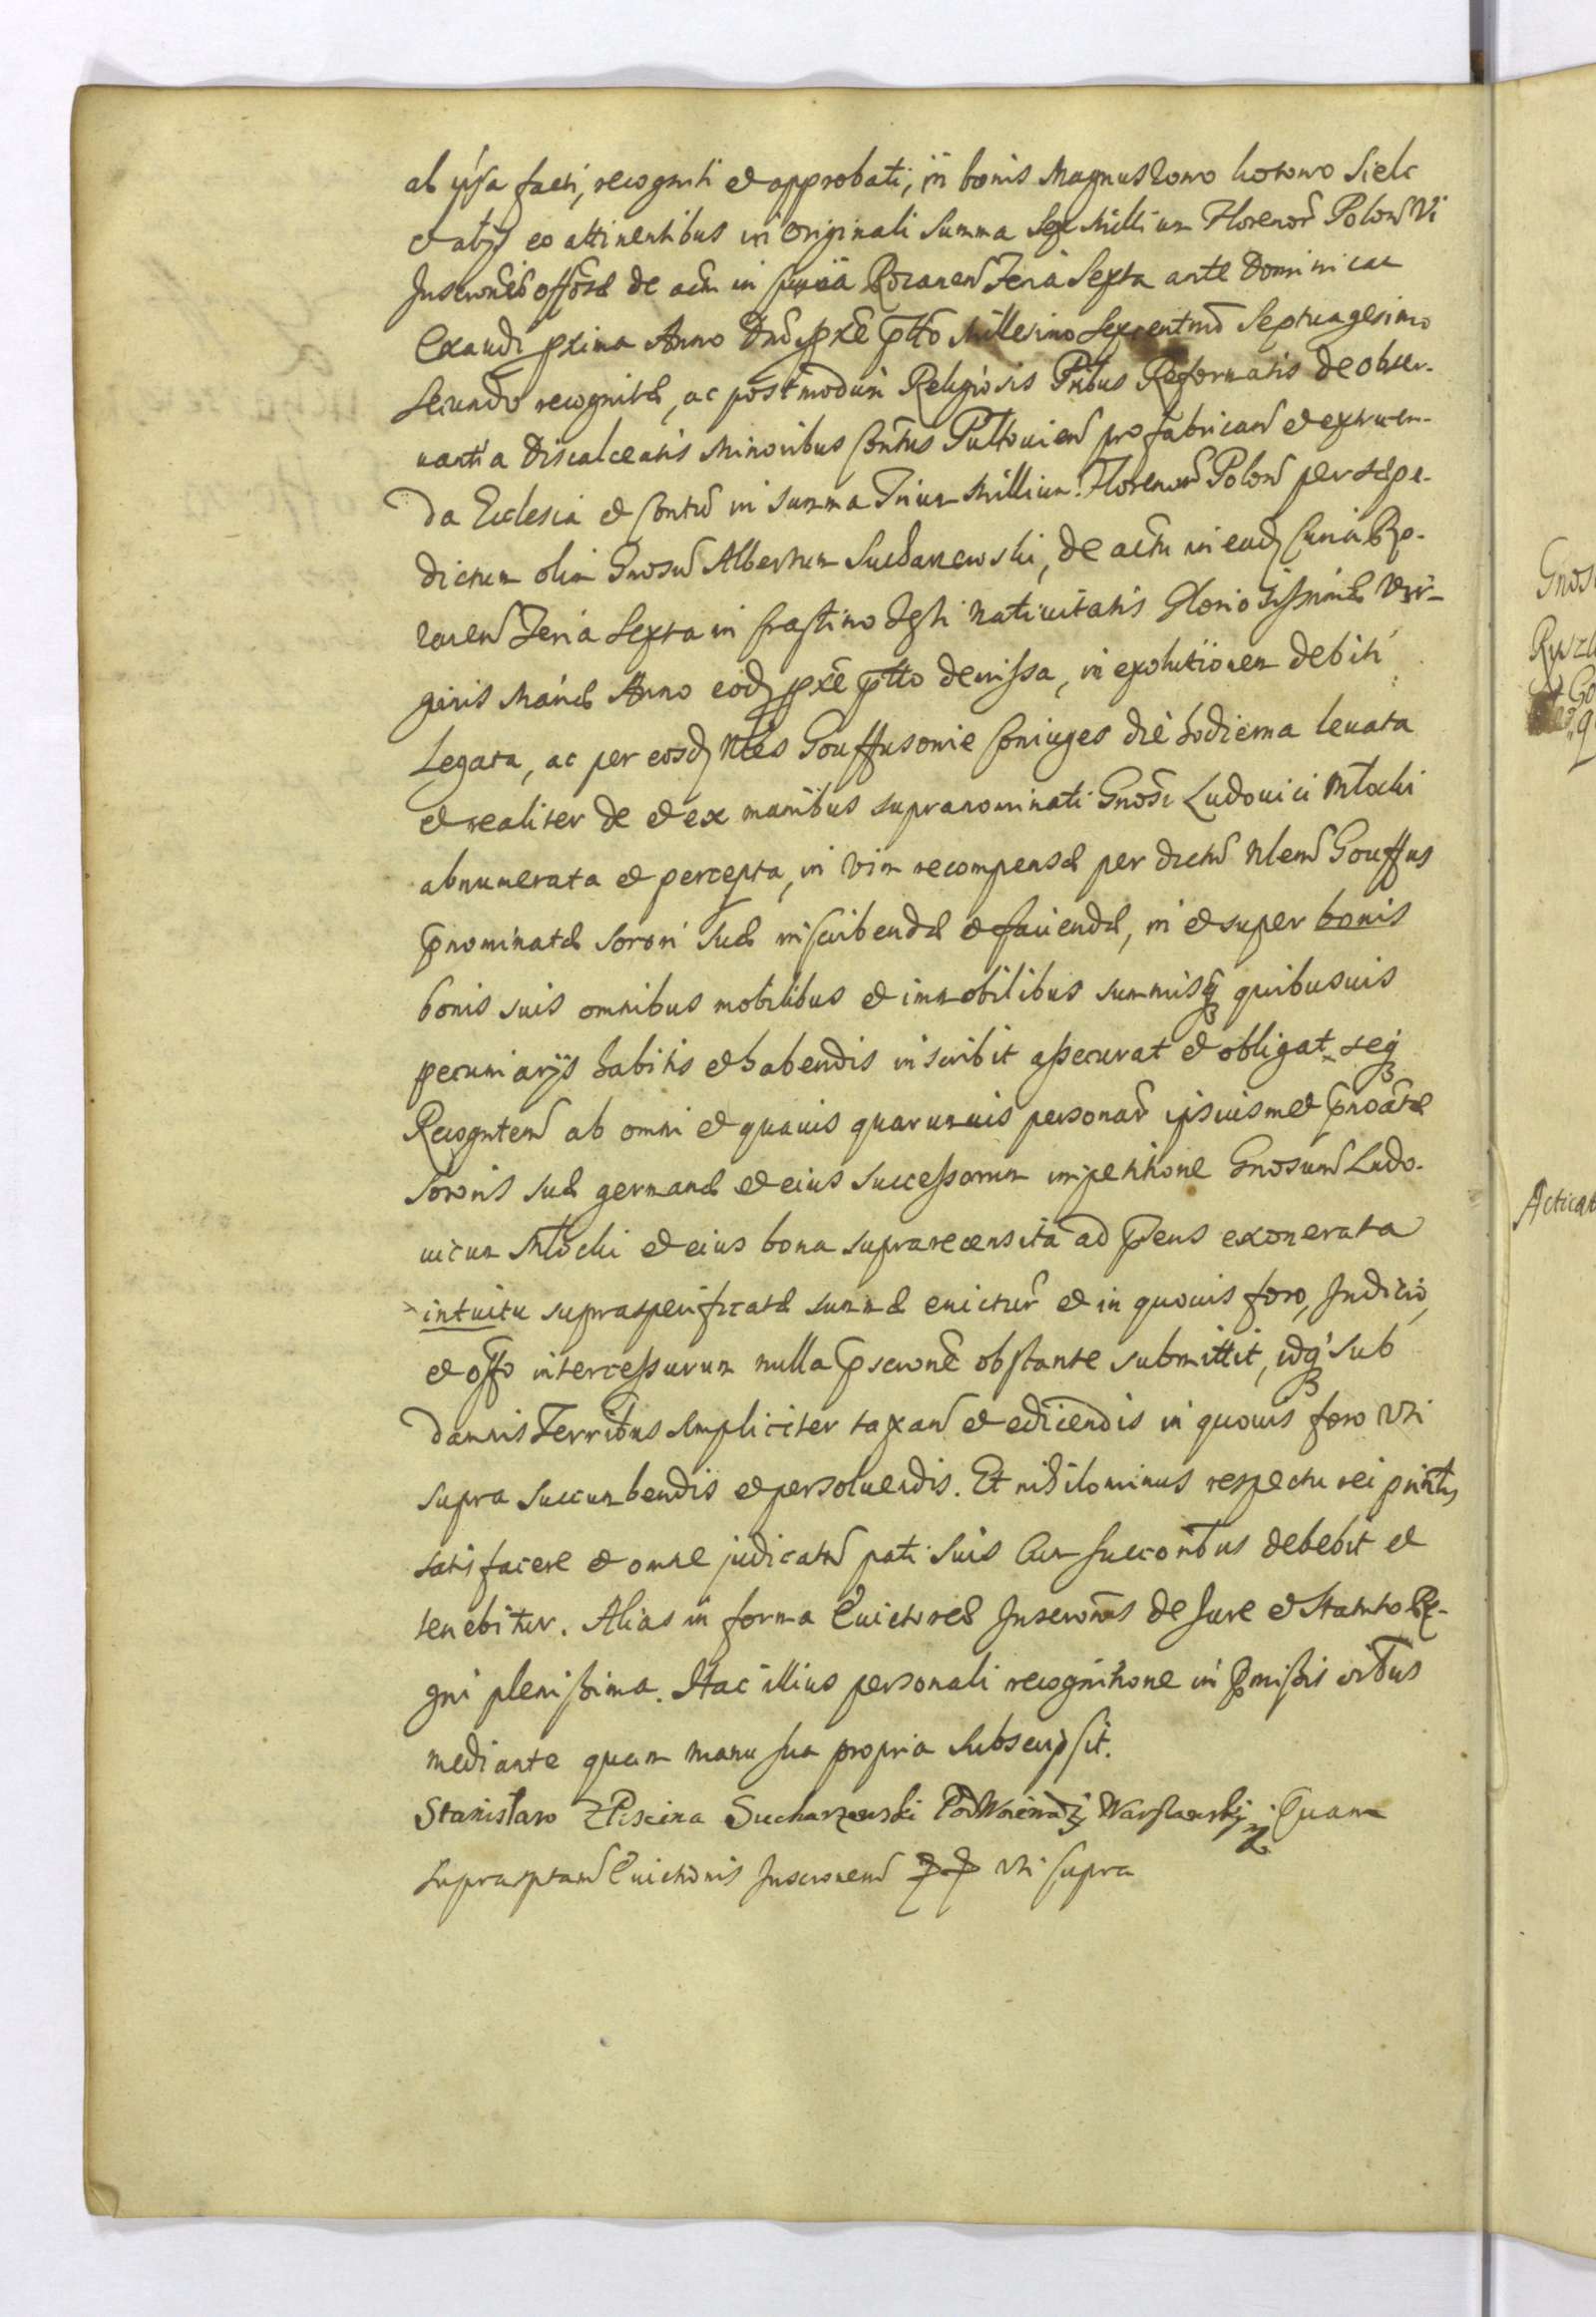 ab ipsa facti, recogniti et approbati, in bonis Magnuszowo kotowo Sielc
et alijs eo attinentibus in originali Summa Sex Millium Florenor Polon Vi
Inscronis offosae de actu in Curia Rozanen Feria Sexta ante Dominicam
Exaudi pxima Anno Dni pxe ptto Millesimo Sexcentmo Septuagesimo
Secundo recognitae, ac postmodum Religiosis Pribus Reformatis de obser-
uantia Discalceatis Minoribus Contus Pultouien pro fabrican et extruen-
da Ecclesia et Contu in Summa Trium Millium Florenor Polon per saepe-
dictum olim Gnosu Albertum Sucharzewski, de actu in ead Curia Ro-
zanen Feria Sexta in Crastino Festi Natiuitatis Gloriosissimae Vir-
ginis Mariae Anno eod pxe ptto demissa, in exolutionem debiti
Legata, ac per eosd Nles Gouffusowie Coniuges die hodierna leuata
et realiter de et ex manibus supranominati Gnosi Ludouici Młocki
abnumerata et percepta, in vim recompensae per dictu Nlem Gouffus
pnominatae sorori suae inscribendae et faciendae, in et super bonis
bonis suis omnibus mobilibus et immobilibus summisq quibusuis
pecuniarijs habitis et habendis inscribit assecurat et obligat seq
Recognten ab omni et quauis quarumuis personar ipsiusmet pnoatae
sororis suae germanae et eius successorum impetitione Gnosum Ludo-
uicum Młocki et eius bona suprarecensita ad pens exonerata
intuitu supraspecificatae summae euictur et in quouis foro, Judicio,
et offo intercessurum nulla pscrone obstante submittit, idq sub
damnis Terribus simpliciter taxan et edicendis in quouis foro vti
supra succumbendis et persoluendis. Et nihilominus respectu rei
satisfacere et omne judicatu pati suis cum succoribus debebit et
tenebitur. Alias in forma Euictoreae Inscronis de Jure et Statuto Re-
gni plenissima. Hac illius personali recognitione in pmissis oibus
mediante quam manu sua propria subscripsit.
Stanisław z Piscina Sucharzewski Warszawski Quam
supraptam Euictionis Inscronem vti supra
Gnos
Acticat